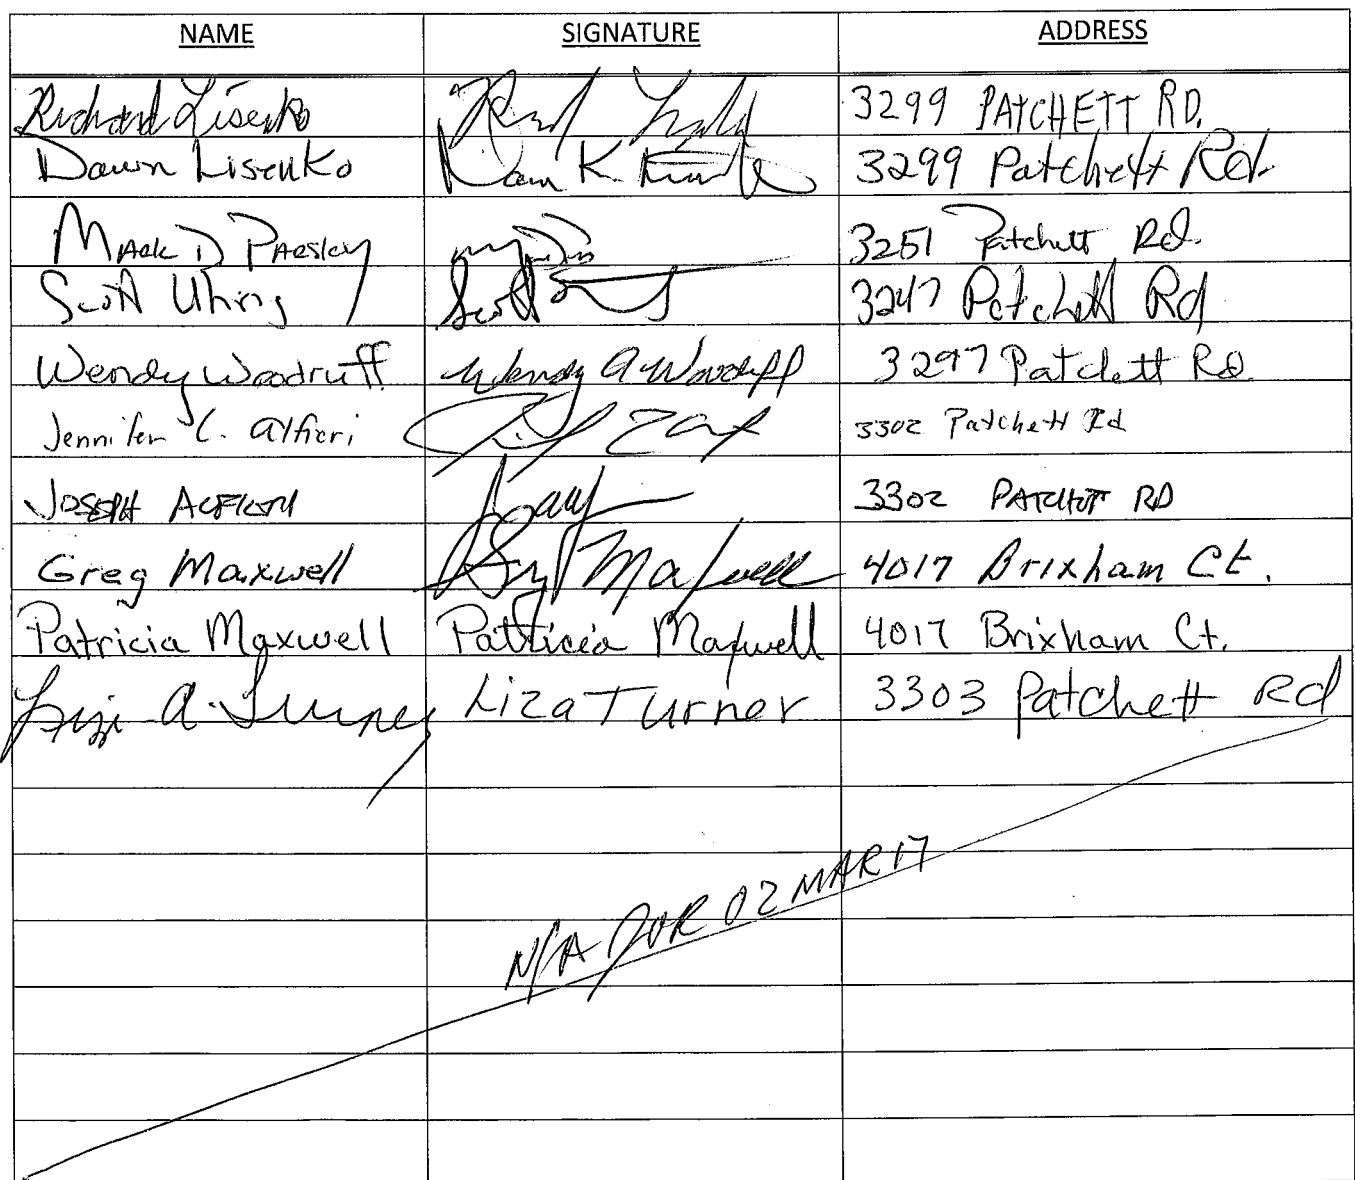 NAME SIGNATURE ADDRESS
Richard Lisenko 3299 PATCHETT RD.
Dawn Lisenko Dawn K. 3299 Patchett Rd.
MARK D PARSLEY 3251 Patchett Rd.
Scott Uhring Scott 3247 Patchett Rd
Wendy Woodruff Wendy A Woodruff 3297 Patchett Rd
Jennifer L. Alfieri 3302 Patchett Rd
JOSEPH ALFIERI 3302 PATCHETT RD
Greg Maxwell Greg Maxwell 4017 Brixham Ct.
Patricia Maxwell Patricia Maxwell 4017 Brixham Ct.
Liza A. Turner Liza Turner 3303 Patchett Rd
N/A 02 MAR 17